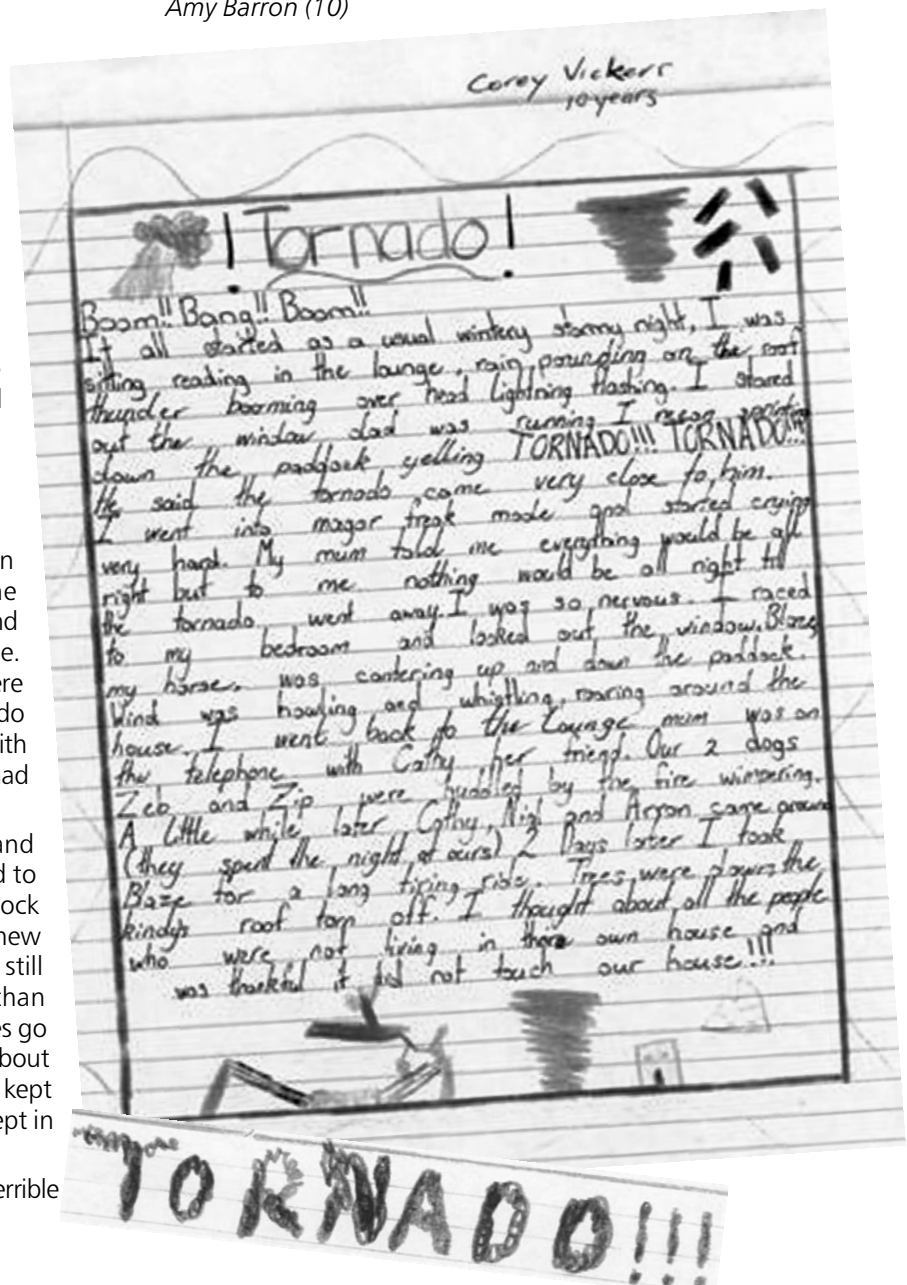 Amy Barron (10)
Corey Vickers
10 years
!Tornado!
Boom!! Bang!! Boom!!
It all started as a usual wintery stormy night, I was
sitting reading in the lounge, rain pounding on the roof
thunder booming over head lightning flashing. I stared
out the window dad was running I reson sprinting
down the paddock yelling TORNADO!!! TORNADO!!!
He said the tornado came very close to him.
I went into magor freak mode and started crying
very hard. My mum told me everything would be all
right but to me nothing would be all right till
the tornado went away. I was so nervous. I raced
to my bedroom and looked out the window. Blaze,
my horse, was cantering up and down the paddock.
Wind was howling and whistling, roaring around the
house. I went back to the lounge mum was on
the telephone with Cathy her friend. Our 2 dogs
Zeb and Zip were huddled by the fire wimpering.
A little while later Cathy, and came around
(they spent the night at ours) 2 Days later I took
Blaze for a long tiring ride. Trees were down, the
kindys roof torn off. I thought about all the people
who were not living in there own house and
was thankful it did not touch our house!!!
n
ne
nd
e.
ere
do
ith
ad
and
d to
ock
new
still
than
es go
bout
kept
ept in
errible
TORNADO!!!